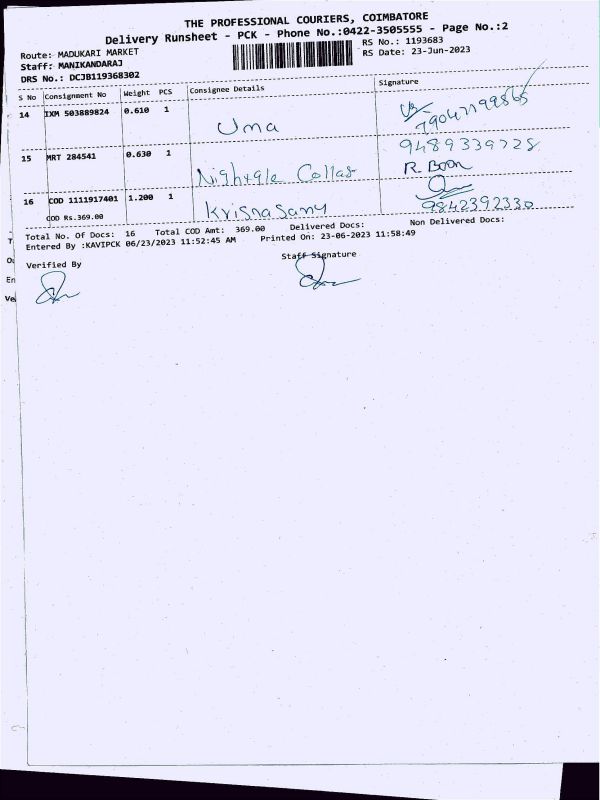 THE PROFESSIONAL COURIERS, COIMBATORE
Delivery Runsheet - PCK - Phone No.:0422-3505555 - Page No.:2
Route: MADUKARI MARKET
RS No.: 1193683
Staff: MANIKANDARAJ
RS Date: 23-Jun-2023
DRS No.: DCJB119368302
S No Consignment No Weight PCS Consignee Details Signature
14 IXM 503889824 0.610 1 Uma
15 MRT 284541 0.630 1 9489339728
R. Boon
16 COD 1111917401 1.200 1 Krisnasamy 9842392330
COD Rs.369.00
Total No. Of Docs: 16 Total COD Amt: 369.00 Delivered Docs: Non Delivered Docs:
Entered By :KAVIPCK 06/23/2023 11:52:45 AM Printed On: 23-06-2023 11:58:49
Verified By Staff Signature